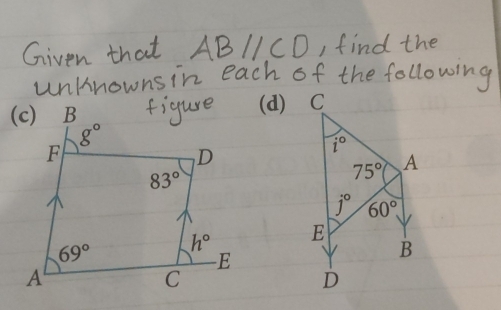 Given that AB//CD, find the
unknowns in each of the following
figure
(c) B (d) C
g°
F
i°
D
75° A
83°
j° 60°
69° h° E
E B
A C
D